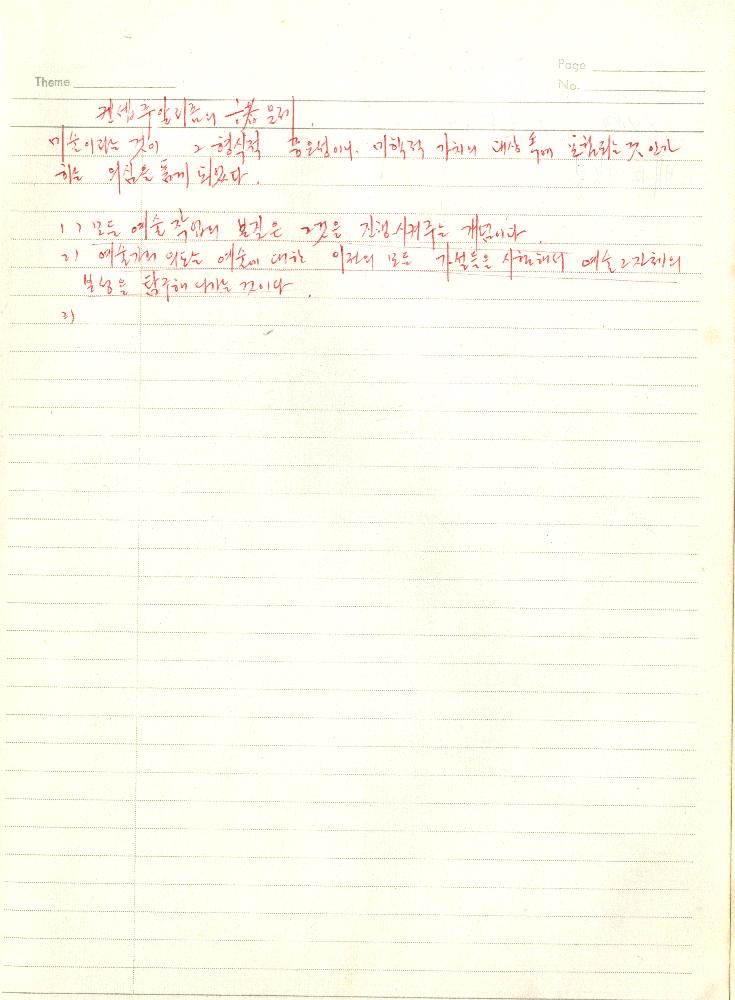 Page
Theme
No.
컨셉츄알리즘의 문제.
미술이라는 것이 그 형식적 이나. 미학적 가치의 대상 속에 포함되는 것인가
하는 의심을 품게 되었다.
1) 모든 예술 작업의 본질은 그것을 진행시켜주는 개념이다.
2) 예술가의 의도는 예술에 대한 이전의 모든 가설들을 시험해서 예술 그 자체의
본성을 탐구해 나가는 것이다.
3)